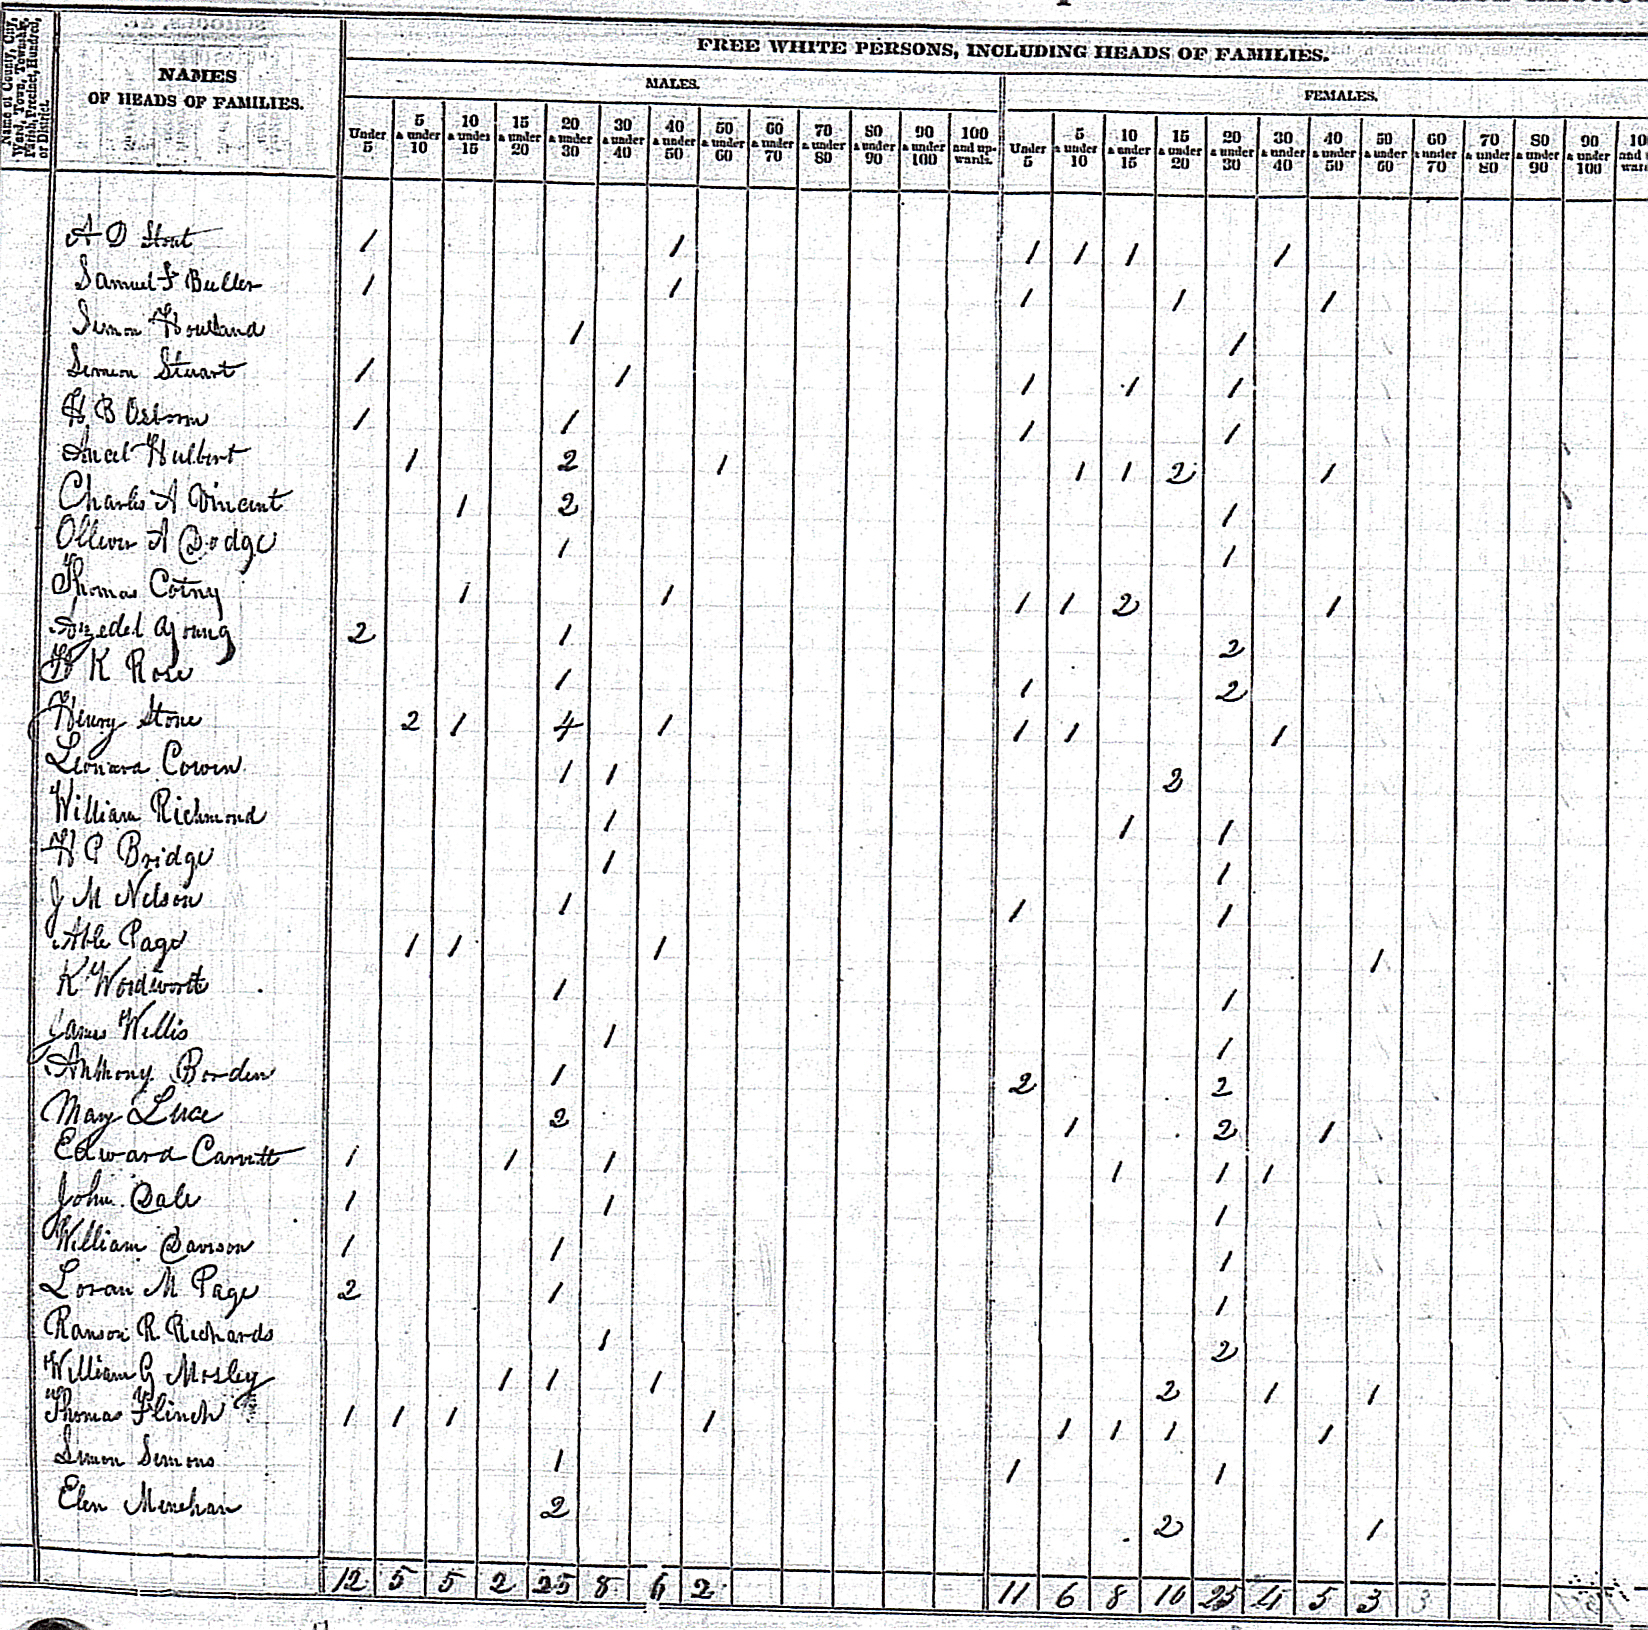 Name of County, City, Ward, Town, Township, Parish, Precinct, Hundred, or District.
NAMES
OF HEADS OF FAMILIES.
FREE WHITE PERSONS, INCLUDING HEADS OF FAMILIES.
MALES.
FEMALES.
Under 5 | 5 & under 10 | 10 & under 15 | 15 & under 20 | 20 & under 30 | 30 & under 40 | 40 & under 50 | 50 & under 60 | 60 & under 70 | 70 & under 80 | 80 & under 90 | 90 & under 100 | 100 and upwards. | Under 5 | 5 & under 10 | 10 & under 15 | 15 & under 20 | 20 & under 30 | 30 & under 40 | 40 & under 50 | 50 & under 60 | 60 & under 70 | 70 & under 80 | 80 & under 90 | 90 & under 100
A D Stout 1 1 1 1 1 1
Samuel F Buller 1 1 1 1 1
Simon Howland 1 1
Simeon Stuart 1 1 1 1 1
H B Osborn 1 1 1 1
Hulbert 1 2 1 1 1 2 1
Charles A Vincent 1 2 1
Olliver A Dodge 1 1
Thomas 1 1 1 1 2 1
Young 2 1 2
K Rose 1 1 2
Henry Stone 2 1 4 1 1 1 1
Leonard Cowen 1 1 2
William Richmond 1 1 1
H P Bridge 1 1
J M Nelson 1 1 1
Able Page 1 1 1 1
K Wordworth 1 1
James Willis 1 1
Anthony Borden 1 2 2
Mary Luce 2 1 2 1
Edward 1 1 1 1 1 1
John Dale 1 1 1
William Davison 1 1 1
Loran M Page 2 1 1
Ransom R Richards 1 2
William G Mosley 1 1 1 2 1 1
Thomas Flinch 1 1 1 1 1 1 1 1
Simon Simons 1 1 1
Elen Menehan 2 2 1
12 5 5 2 25 8 6 2 11 6 8 10 25 4 5 3